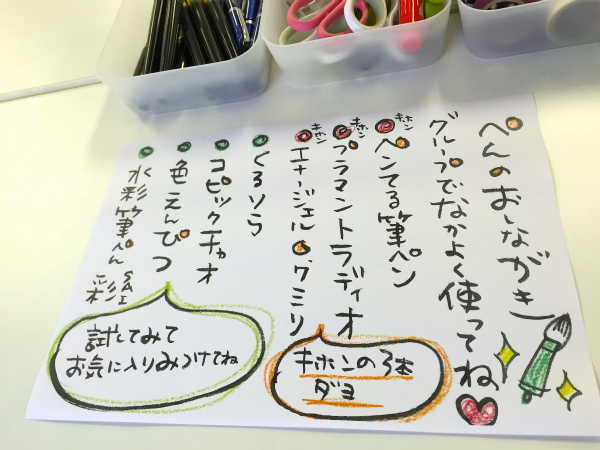 ぺんのおしながき
グループでなかよく使ってね
キホン
ペンてる筆ペン
キホン
プラマントラディオ
キホン
エナージェル 0.7ミリ
くろソラ
コピックチャオ
色えんぴつ
水彩筆ぺん 彩
SAI
キホンの3本
ダヨ
試してみて
お気に入りみつけてね